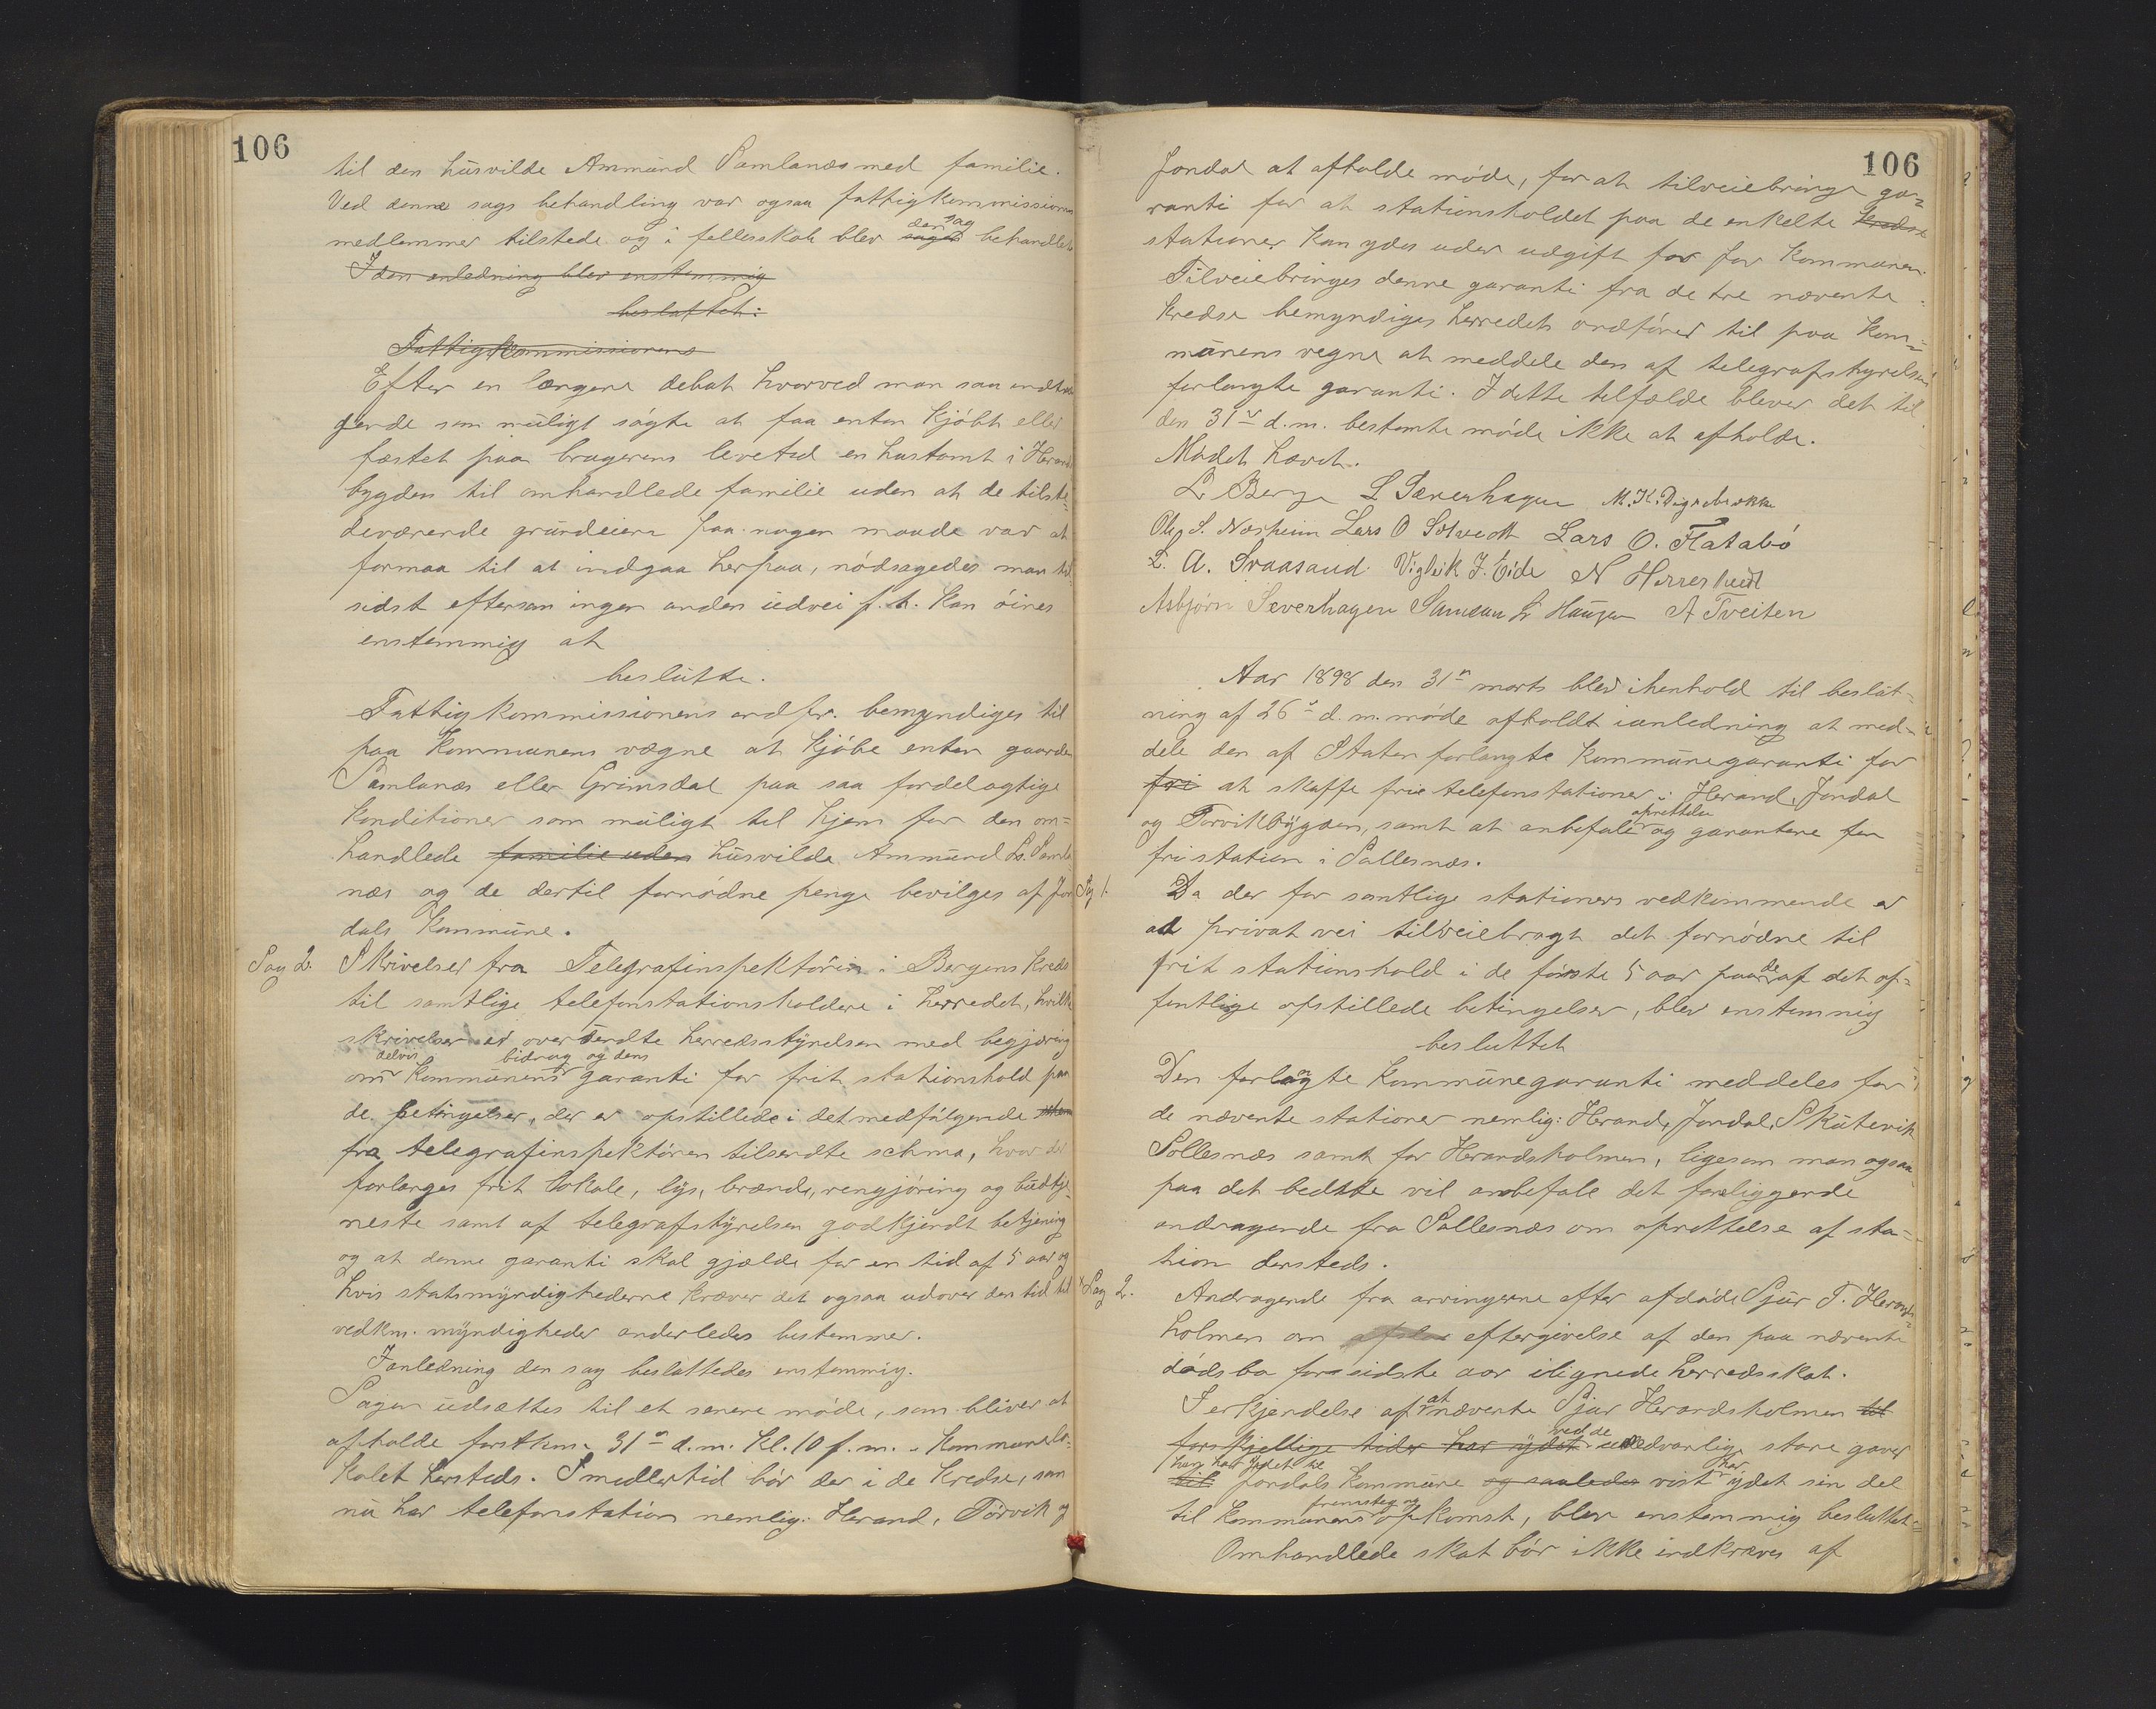 106
til den husvilde Ammund Samlanæs med familie.
Ved denne sags behandling var ogsaa fattigkommissionens
medlemmer tilstede og i fellesskab blev den sag sagen behandlet
I den anledning blev enstemmig
besluttet:
Fattigkommissionens
Efter en længere debat hvorved man saa indtræn
gende som muligt søgte at faa enten kjøbt eller
fæstet paa brugerens levetid en hustomt i Herand
bygden til omhandlede familie uden at de tilste
deværende grundeiere paa nogen maade var at
formaa til at indgaa herpaa, nødsagedes man til
sidst eftersom ingen anden udvei f. t. kan øines
enstemmig at
beslutte.
Fattigkommissionens ordfr. bemyndiges til
paa kommunens vægne at kjøbe enten gaarden
Samlanæs eller Grimsdal paa saa fordelagtige
konditioner som muligt til hjem for den om=
handlede familie uden husvilde Ammund Ls. Samla
næs og de dertil fornødne penge bevilges af Jon
dals kommune.
Sag 2. Skrivelser fra Telegrafinspektøren i Bergens kreds
til samtlige telefonstationsholdere i herredet, hvilke
skrivelser er oversendte herredsstyrelsen med begjæring
delvis bidrag og dens
om kommunens garanti for frit stationshold paa
de betingelser, der er opstillede i det medfølgende
fra telegrafinspektøren tilsendte schma, hvor der
forlanges frit lokale, lys, brænde, rengjøring og budtje
neste samt af telegrafstyrelsen godkjendt betjening
og at denne garanti skal gjælde for en tid af 5 aar og
hvis statsmyndighederne kræver det ogsaa udover den tid til
vedkm. myndigheder anderledes bestemmer.
I anledning den sag besluttedes enstemmig.
Sagen udsættes til et senere møde, som bliver at
afholde førstkm. 31n d. m. kl. 10 f. m. i kommunelo-
kalet hersteds. Imidlertid bør der i de kredse, som
nu har telefonstation nemlig: Herand, Torvik og
106
Jondal at afholde møde, for at tilveiebringe ga=
ranti for at stationsholdet paa de enkelte kredse
stationer kan ydes uden udgift for for kommunen.
Tilveiebringes denne garanti fra de tre nævnte
kredse bemyndiges herredets ordfører til paa kom=
munens vegne at meddele den af telegrafstyrelsen
forlangte garanti. I dette tilfælde bliver det til
den 31te d. m. bestemte møde ikke at afholde.
Mødet hævet.
L Berge L Sæverhagen M. K. Digrebrække
Ole S. Næsheim Lars O Solvedt Lars O. Flatabø
L. A. Svaasand Viglik J. Eide N Herreskvedt
Asbjørn Sæverhagen Samson L Haugen A Tveiten
Aar 1898 den 31n marts blev i henhold til beslut-
ning af 26n d. m. møde afholdt i anledning at med-
dele den af Staten forlangte kommunegaranti for
fri at skaffe frie telefonstationer i Herand, Jondal
oprettelse
og Torvikbygden, samt at anbefale og garantere for
fri station i Sollesnæs.
Sag 1. Da der for samtlige stationers vedkommende er
ad privat vei tilveiebragt det fornødne til
frit stationshold i de første 5 aar paa de af det of=
fentlige opstillede betingelser, blev enstemmig
besluttet
Den forlangte kommunegaranti meddeles for
de nævnte stationer nemlig: Herand, Jondal, Skutevik
Sollesnæs samt for Herandsholmen, ligesom man ogsaa
paa det bedste vil anbefale det foreliggende
andragende fra Sollesnæs om oprettelse af sta=
tion dersteds.
Sag 2. Andragende fra arvingerne efter afdøde Sjur T. Herands=
holmen om eftergivelse af den paa nævnte
dødsbo for sidste aar ilignede herredsskat.
I erkjendelse af at nævnte Sjur Herandsholmen til
ved de
forskjellige tider har ydet usedvanlige store gaver
han har ydet har
til Jondals kommune og saaledes vist ydet sin del
fremsteg og
til kommunens opkomst, blev enstemmig besluttet:
Omhandlede skat bør ikke indkræves af